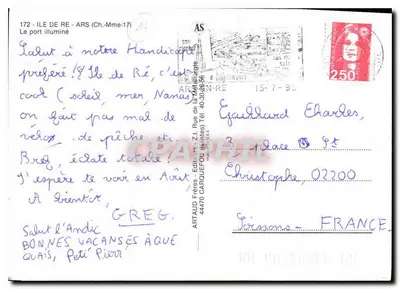 172 - ILE DE RE - ARS (Ch.-Mme-17)
Le port illuminé
Salut à notre Handicapé
préféré! L'Ile de Ré, c'est
cool (soleil, mer, Nanas)
on fait pas mal de
vélos, de pêche etc
Bref, éclate totale!
J'espère te voir en Août.
A bientôt,
GREG.
Salut l'Andic
BONNES VACANSES À QUE
QUAIS, Peti Pierr
AS
EN-RE
13-7-9
2,50
ARTAUD Frères, Editeurs - Z.I. Rue de la Métallurgie
44470 CARQUEFOU Tél. 40.30.26.56
CPARAMA
Gaillard Charles,
3 place St
Christophe 02200
Soissons - FRANCE